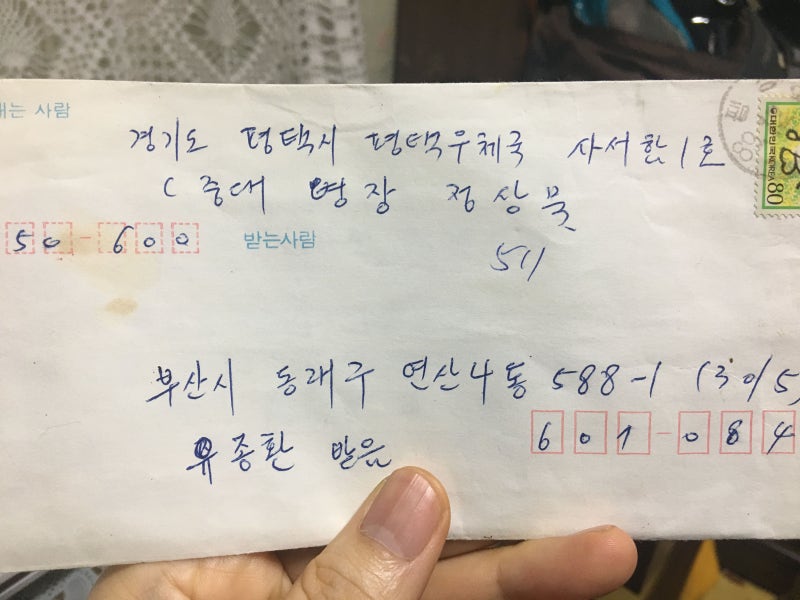 내는 사람
경기도 평택시 평택우체국 사서함 1호
C중대 병장 정상묵
511
50-600
받는사람
부산시 동래구 연산4동 588-1 (30/5)
유종환 받음
601-084
대한민국 KOREA 80